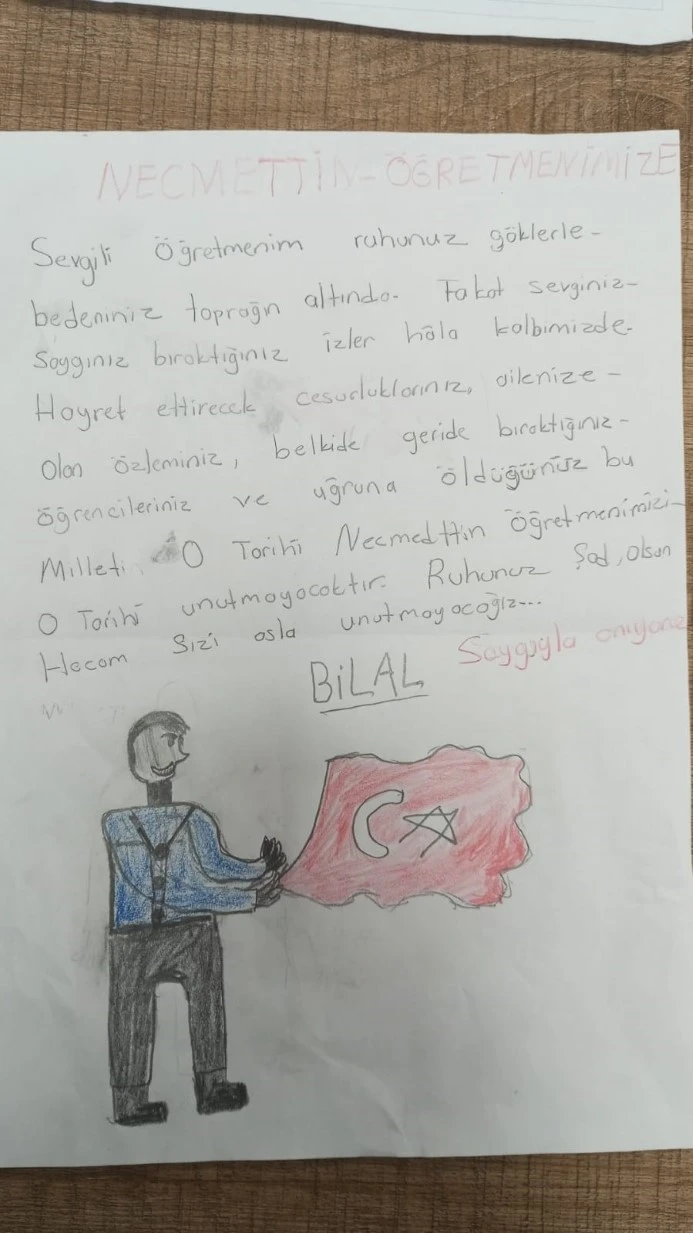 NECMETTİN-ÖĞRETMENİMİZE
Sevgili Öğretmenim ruhunuz göklerle-
bedeniniz toprağn altında. Fakat sevginiz-
Saygınız bıraktığınız izler hâla kalbimizde.
Hayret ettirecek cesurluklarınız, ailenize -
Olan özleminiz, belkide geride bıraktığınız -
öğrencileriniz ve uğruna öldüğünüz bu
Milleti. O Tarihi Necmedttin öğretmenimizi-
O Tarihi unutmayacaktır. Ruhunuz Şad, olsun
Hocam Sizi asla unutmayacağız...
Saygıyla anıyoruz
BİLAL